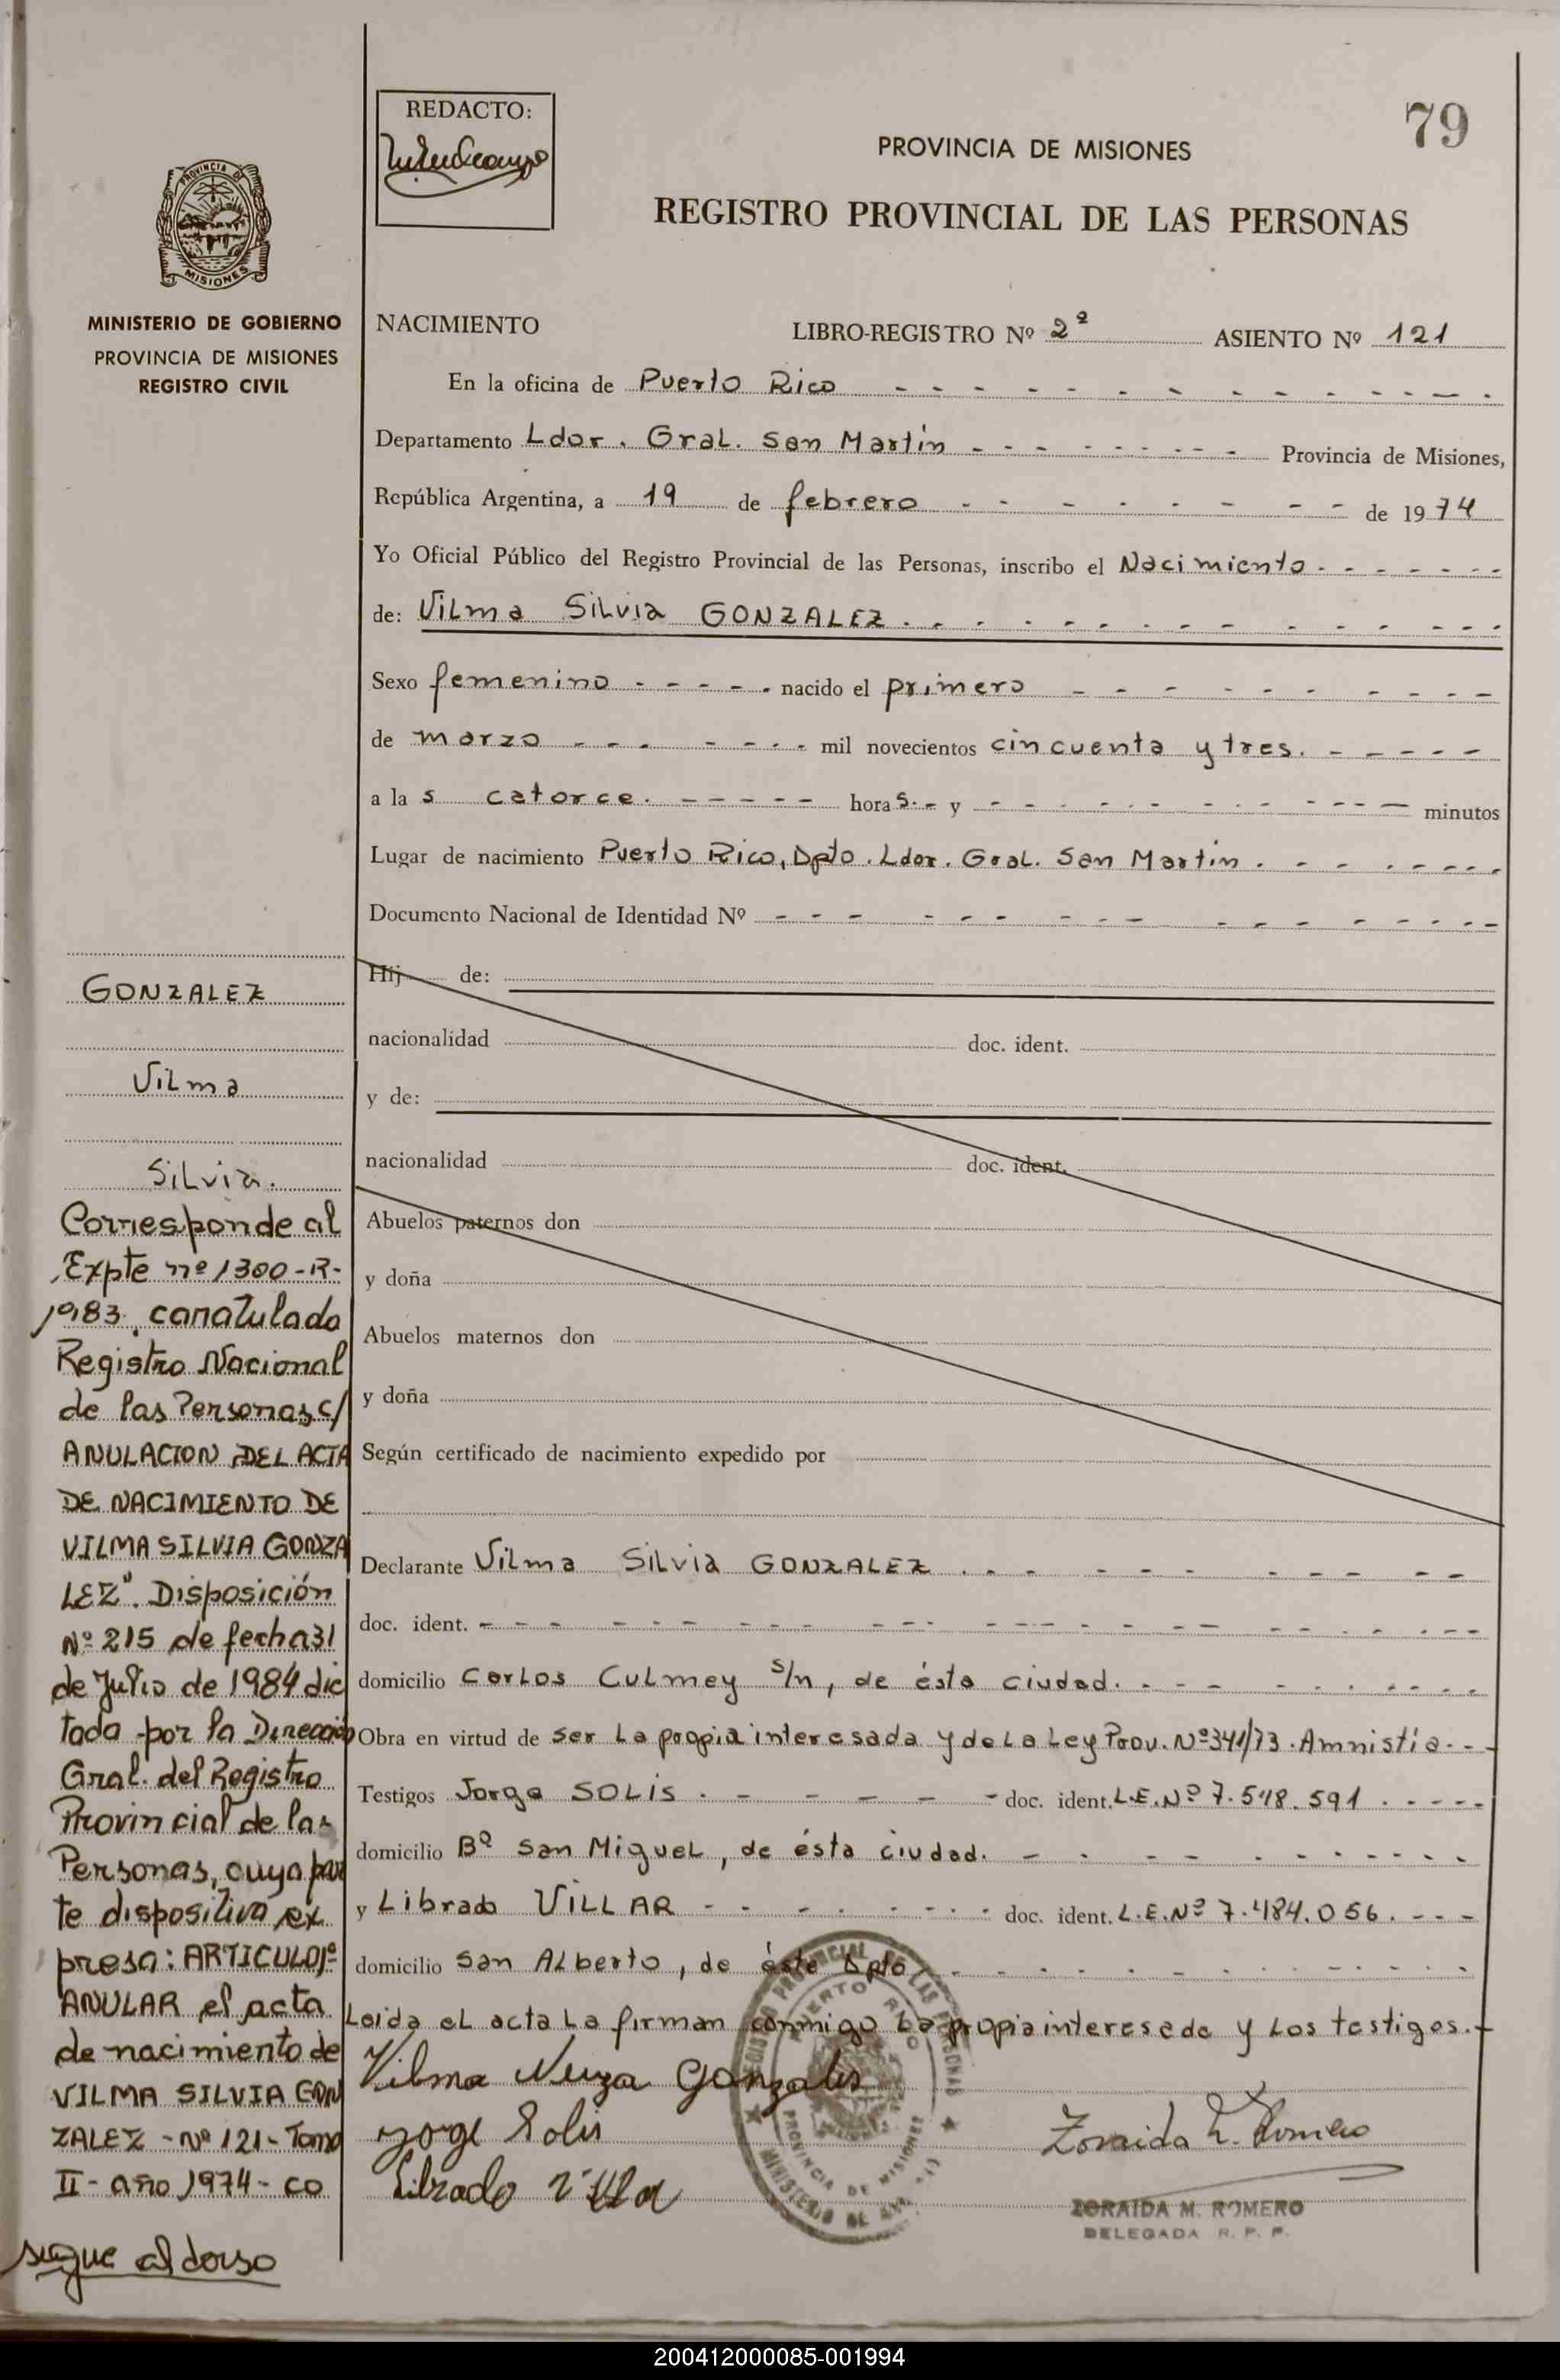 79
REDACTO:
PROVINCIA DE MISIONES
REGISTRO PROVINCIAL DE LAS PERSONAS
PROVINCIA DE
MISIONES
MINISTERIO DE GOBIERNO
PROVINCIA DE MISIONES
REGISTRO CIVIL
NACIMIENTO LIBRO-REGISTRO Nº 2º ASIENTO Nº 121
En la oficina de Puerto Rico
Departamento Ldor. Gral. San Martín Provincia de Misiones,
República Argentina, a 19 de febrero de 1974
Yo Oficial Público del Registro Provincial de las Personas, inscribo el Nacimiento
de: Vilma Silvia GONZALEZ
Sexo femenino nacido el primero
de marzo mil novecientos cincuenta y tres.
a las catorce. horas. y minutos
Lugar de nacimiento Puerto Rico, Dpto. Ldor. Gral. San Martín.
Documento Nacional de Identidad Nº
Hij de:
nacionalidad doc. ident.
y de:
nacionalidad doc. ident.
Abuelos paternos don
y doña
Abuelos maternos don
y doña
Según certificado de nacimiento expedido por
Declarante Vilma Silvia GONZALEZ
doc. ident.
domicilio Carlos Culmey s/n, de ésta ciudad.
Obra en virtud de ser la propia interesada y de la Ley Prov. Nº 341/73. Amnistía.
Testigos Jorge SOLIS doc. ident. L.E. Nº 7.548.591
domicilio Bº San Miguel, de ésta ciudad.
y Librado VILLAR doc. ident. L.E. Nº 7.484.056.
domicilio San Alberto, de éste Dpto.
Leida el acta la firman conmigo la propia interesada y los testigos.
Vilma Neuza Gonzales
Jorge Solis
Librado Villar
Zoraida M. Romero
ZORAIDA M. ROMERO
DELEGADA R. P. P.
REGISTRO PROVINCIAL DE LAS PERSONAS
PUERTO RICO
PROVINCIA DE MISIONES
GONZALEZ
Vilma
Silvia.
Corresponde al
Expte nº 1300-R-
1983. caratulado
Registro Nacional
de las Personas c/
ANULACION DEL ACTA
DE NACIMIENTO DE
VILMA SILVIA GONZA
LEZ". Disposición
Nº 215 de fecha 31
de Julio de 1984 dic
tada por la Dirección
Gral. del Registro
Provincial de las
Personas, cuya par
te dispositiva ex
presa: ARTICULO 1º
ANULAR el acta
de nacimiento de
VILMA SILVIA GON
ZALEZ - Nº 121 - Tomo
II - año 1974 - co
sigue al dorso
200412000085-001994